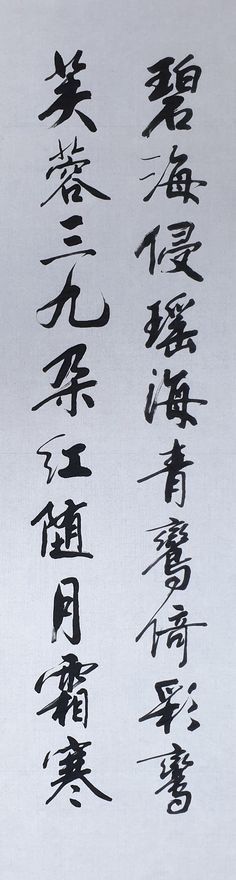 碧海侵瑶海青鸾倚彩鸾
芙蓉三九朵红随月霜寒